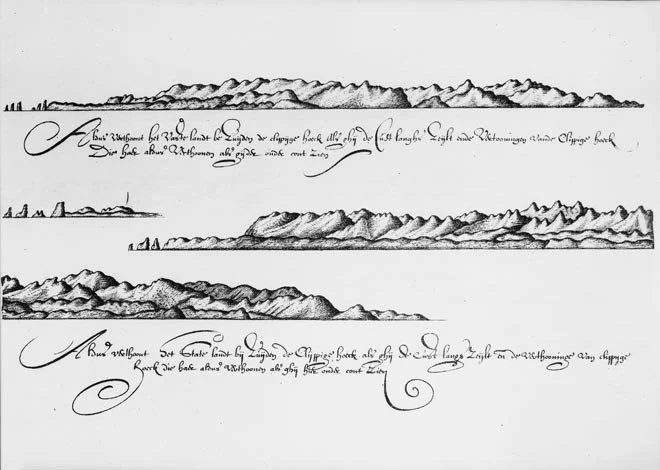 Aldus verthoont het Vaste landt be Zuyden de clippige hoeck als ghij de Cust langhs Zeijlt ende Vertooningen vande Clippige hoeck
Die haer aldus Verthoonen als ghij de onder cont Zien
Aldus verthoont Het State landt bij Zuijden de Clippige hoeck als ghij de Cust langs Zeijlt en de verthooninge van clippige
Hoeck die haer aldus Verthoonen als ghij onder cont Zien